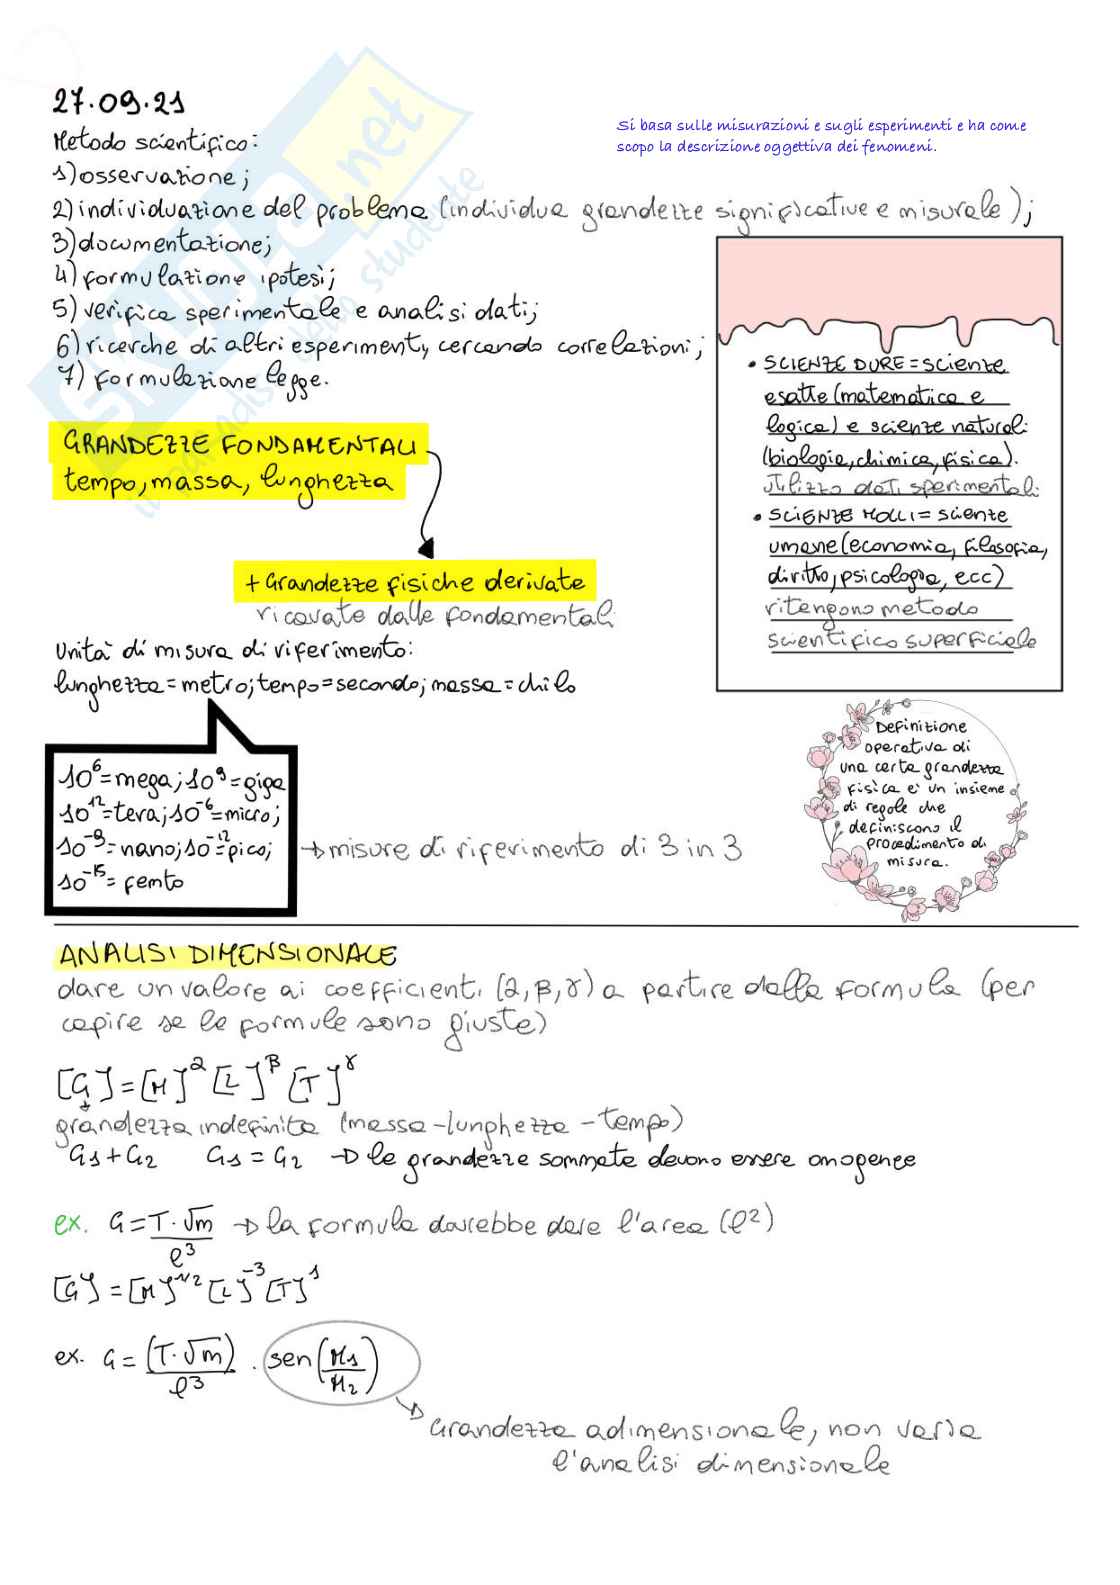 27.09.21
Metodo scientifico:
Si basa sulle misurazioni e sugli esperimenti e ha come
scopo la descrizione oggettiva dei fenomeni.
1) osservazione;
2) individuazione del problema (individua grandezze significative e misurale);
3) documentazione;
4) formulazione ipotesi;
5) verifica sperimentale e analisi dati;
6) ricerche di altri esperimenti, cercando correlazioni;
7) formulazione legge.
SKUOLA.net
il paradiso dello studente
• SCIENZE DURE = scienze
esatte (matematica e
logica) e scienze naturali
(biologia, chimica, fisica).
Utilizzo dati sperimentali
• SCIENZE MOLLI = scienze
umane (economia, filosofia,
diritto, psicologia, ecc)
ritengono metodo
scientifico superficiale
GRANDEZZE FONDAMENTALI
tempo, massa, lunghezza
+ Grandezze fisiche derivate
ricavate dalle fondamentali
Unità di misura di riferimento:
lunghezza = metro; tempo = secondo; massa = chilo
10⁶ = mega; 10⁹ = giga
10¹² = tera; 10⁻⁶ = micro;
10⁻⁹ = nano; 10⁻¹² = pico;
10⁻¹⁵ = femto
→ misure di riferimento di 3 in 3
Definizione
operativa di
una certa grandezza
fisica e' un insieme
di regole che
definiscono il
procedimento di
misura.
ANALISI DIMENSIONALE
dare un valore ai coefficienti (α, β, γ) a partire dalla formula (per
capire se le formule sono giuste)
[G] = [M]^α [L]^β [T]^γ
grandezza indefinita (massa - lunghezza - tempo)
G₁ + G₂ G₁ = G₂ → le grandezze sommate devono essere omogenee
ex. G = T · √m / l³ → la formula dovrebbe dare l'area (l²)
[G] = [M]^1/2 [L]^-3 [T]^1
ex. G = (T · √m) / l³ · sen (M₁ / M₂)
→ Grandezza adimensionale, non varia
l'analisi dimensionale